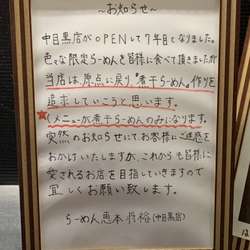 ～お知らせ～
中目黒店がOPENして7年目となりました。
色々な限定らーめんを皆様に食べて頂きましたが
当店は原点に戻り"煮干らーめん"作りを
追求していこうと思います。
★(メニューが煮干らーめんのみになります。)
突然のお知らせにてお客様にご迷惑を
おかけいたしますが、これからも皆様に
愛されるお店を目指していきますので
宜しくお願い致します。
らーめん恵本将裕(中目黒店)